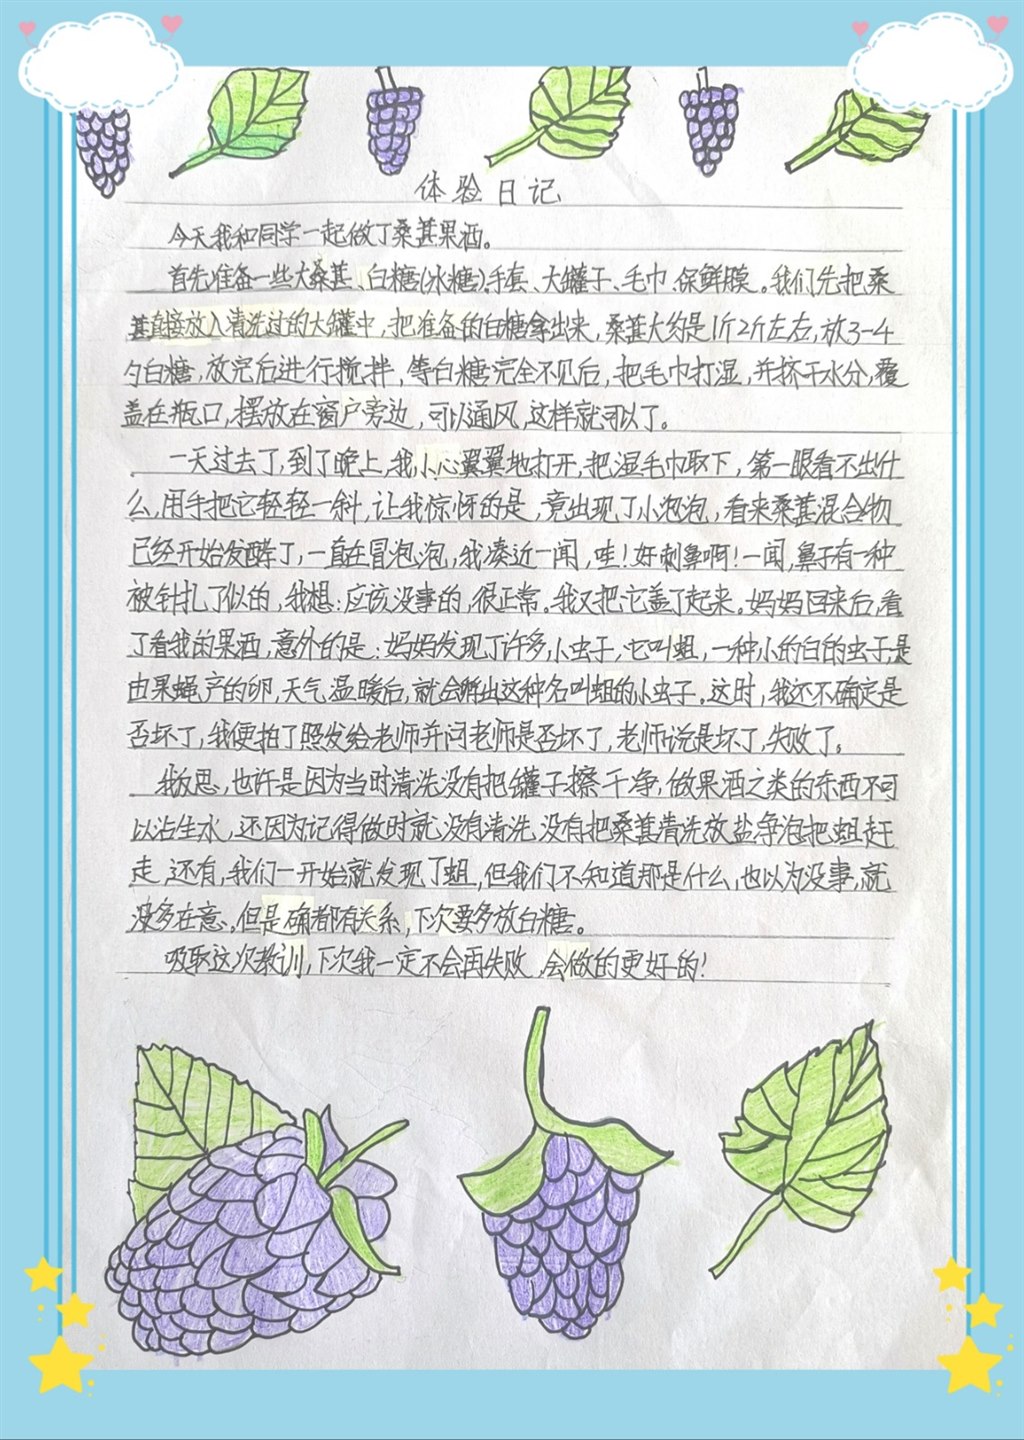 体验日记
今天我和同学一起做了桑葚果酒。
首先准备一些大桑葚、白糖(冰糖)、手套、大罐子、毛巾、保鲜膜。我们先把桑
葚直接放入清洗过的大罐中，把准备的白糖拿出来，桑葚大约是1斤2斤左右，放3-4
勺白糖，放完后进行搅拌，等白糖完全不见后，把毛巾打湿，并挤干水分，覆
盖在瓶口，摆放在窗户旁边，可以通风，这样就可以了。
一天过去了，到了晚上，我小心翼翼地打开，把湿毛巾取下，第一眼看不出什
么，用手把它轻轻一斜，让我惊讶的是，竟出现了小泡泡，看来桑葚混合物
已经开始发酵了，一直在冒泡泡，我凑近一闻，哇！好刺鼻啊！一闻，鼻子有一种
被针扎了似的，我想：应该没事的，很正常。我又把它盖了起来。妈妈回来后，看
了看我的果酒，意外的是：妈妈发现了许多小虫子，它叫蛆，一种小的白的虫子是
由果蝇产的卵，天气温暖后，就会孵出这种名叫蛆的小虫子。这时，我还不确定是
否坏了，我便拍了照发给老师并问老师是否坏了，老师说是坏了，失败了。
我反思，也许是因为当时清洗没有把罐子擦干净，做果酒之类的东西不可
以沾生水，还因为记得做时就没有清洗，没有把桑葚清洗放盐净泡把蛆赶
走，还有，我们一开始就发现了蛆，但我们不知道那是什么，也以为没事，就
没多在意。但是确都有关系，下次要多放白糖。
吸取这次教训，下次我一定不会再失败，会做的更好的！